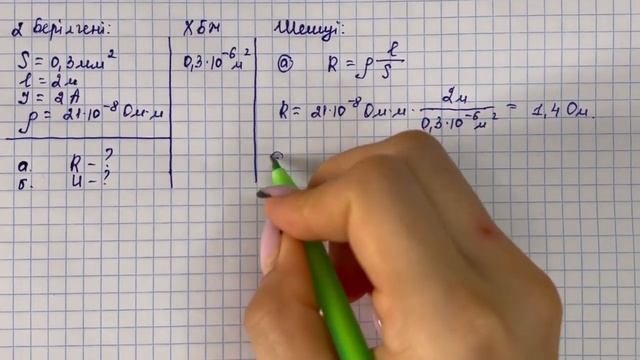 2 Берілгені:
S = 0,3 мм²
l = 2м
I = 2 А
ρ = 21·10⁻⁸ Ом·м
а. R - ?
б. U - ?
ХБЖ
0,3·10⁻⁶ м²
Шешуі:
а) R = ρ l/S
R = 21·10⁻⁸ Ом·м · 2м/0,3·10⁻⁶ м² = 1,4 Ом.